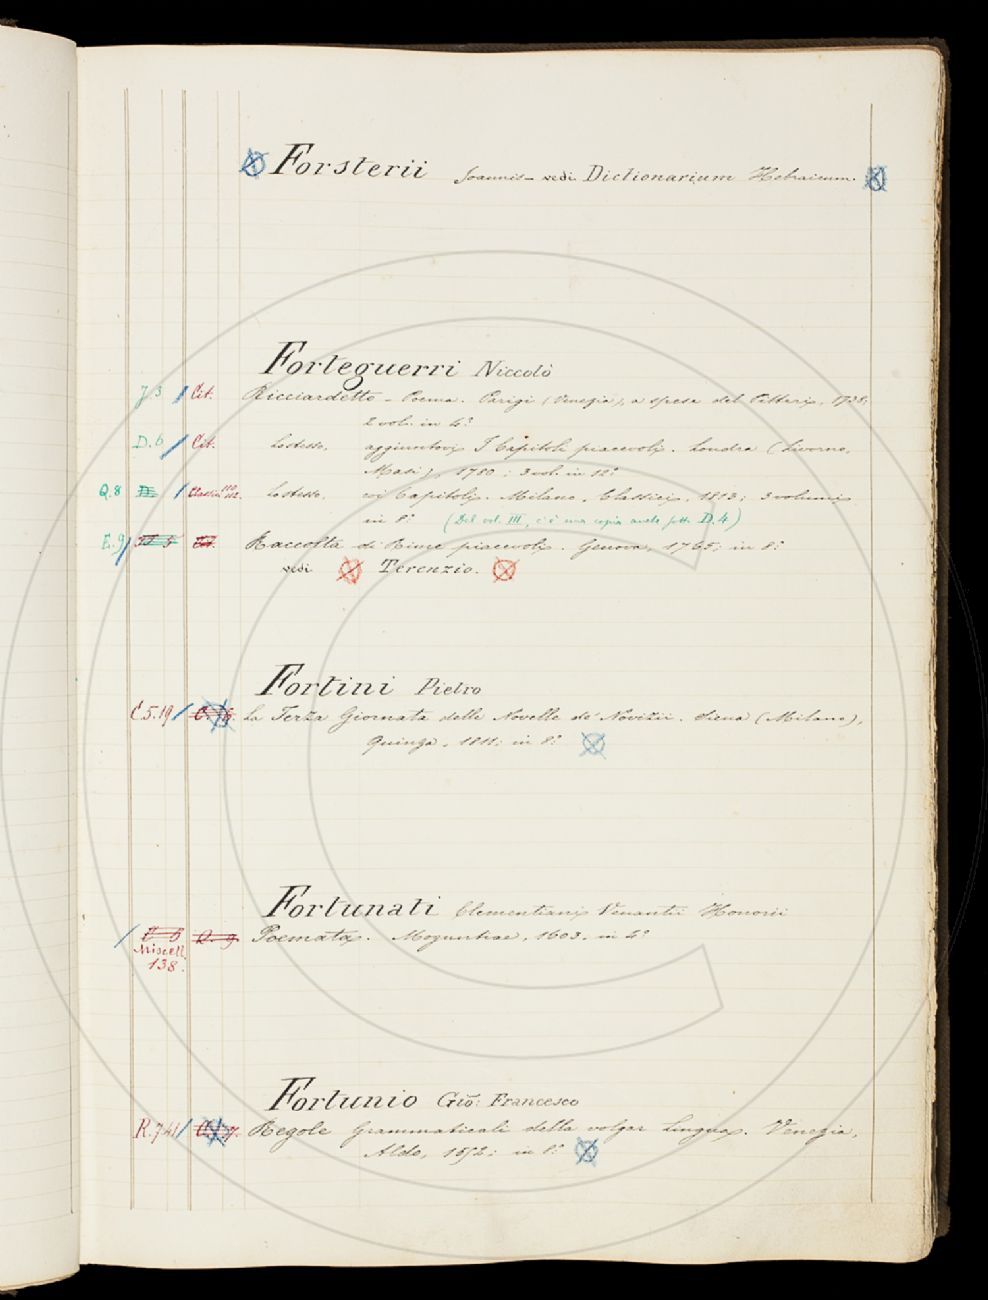 Forsterii Joannis - vedi Dictionarium Hebraicum.
Forteguerri Niccolò
J 3 / Cit. Ricciardetto - Poema. Parigi (Venezia), a spese del Pitteri, 1738;
2 vol. in 4°
D. 6 / Cit. Lo stesso, aggiuntovi I Capitoli piacevoli. Londra (Livorno,
Masi), 1780; 3 vol. in 12°
Q. 8 / Classici Lo stesso, coi Capitoli. Milano, Classici, 1813; 3 volumi
in 8° (Del vol. III, c'è una copia anche sotto D. 4)
E. 9 / Raccolta di Rime piacevoli. Genova, 1765; in 8°
vedi Terenzio.
Fortini Pietro
C. 5. 19 / La Terza Giornata delle Novelle de' Novizii. Siena (Milano),
1811; in 8°
Fortunati Clementiani Venantii Honorii
/ Poemata. Moguntiae, 1603, in 4°
Miscell.
138.
Fortunio Gio: Francesco
R. 7. 41 / Regole Grammaticali della volgar lingua. Venezia,
Aldo, 1552; in 8°